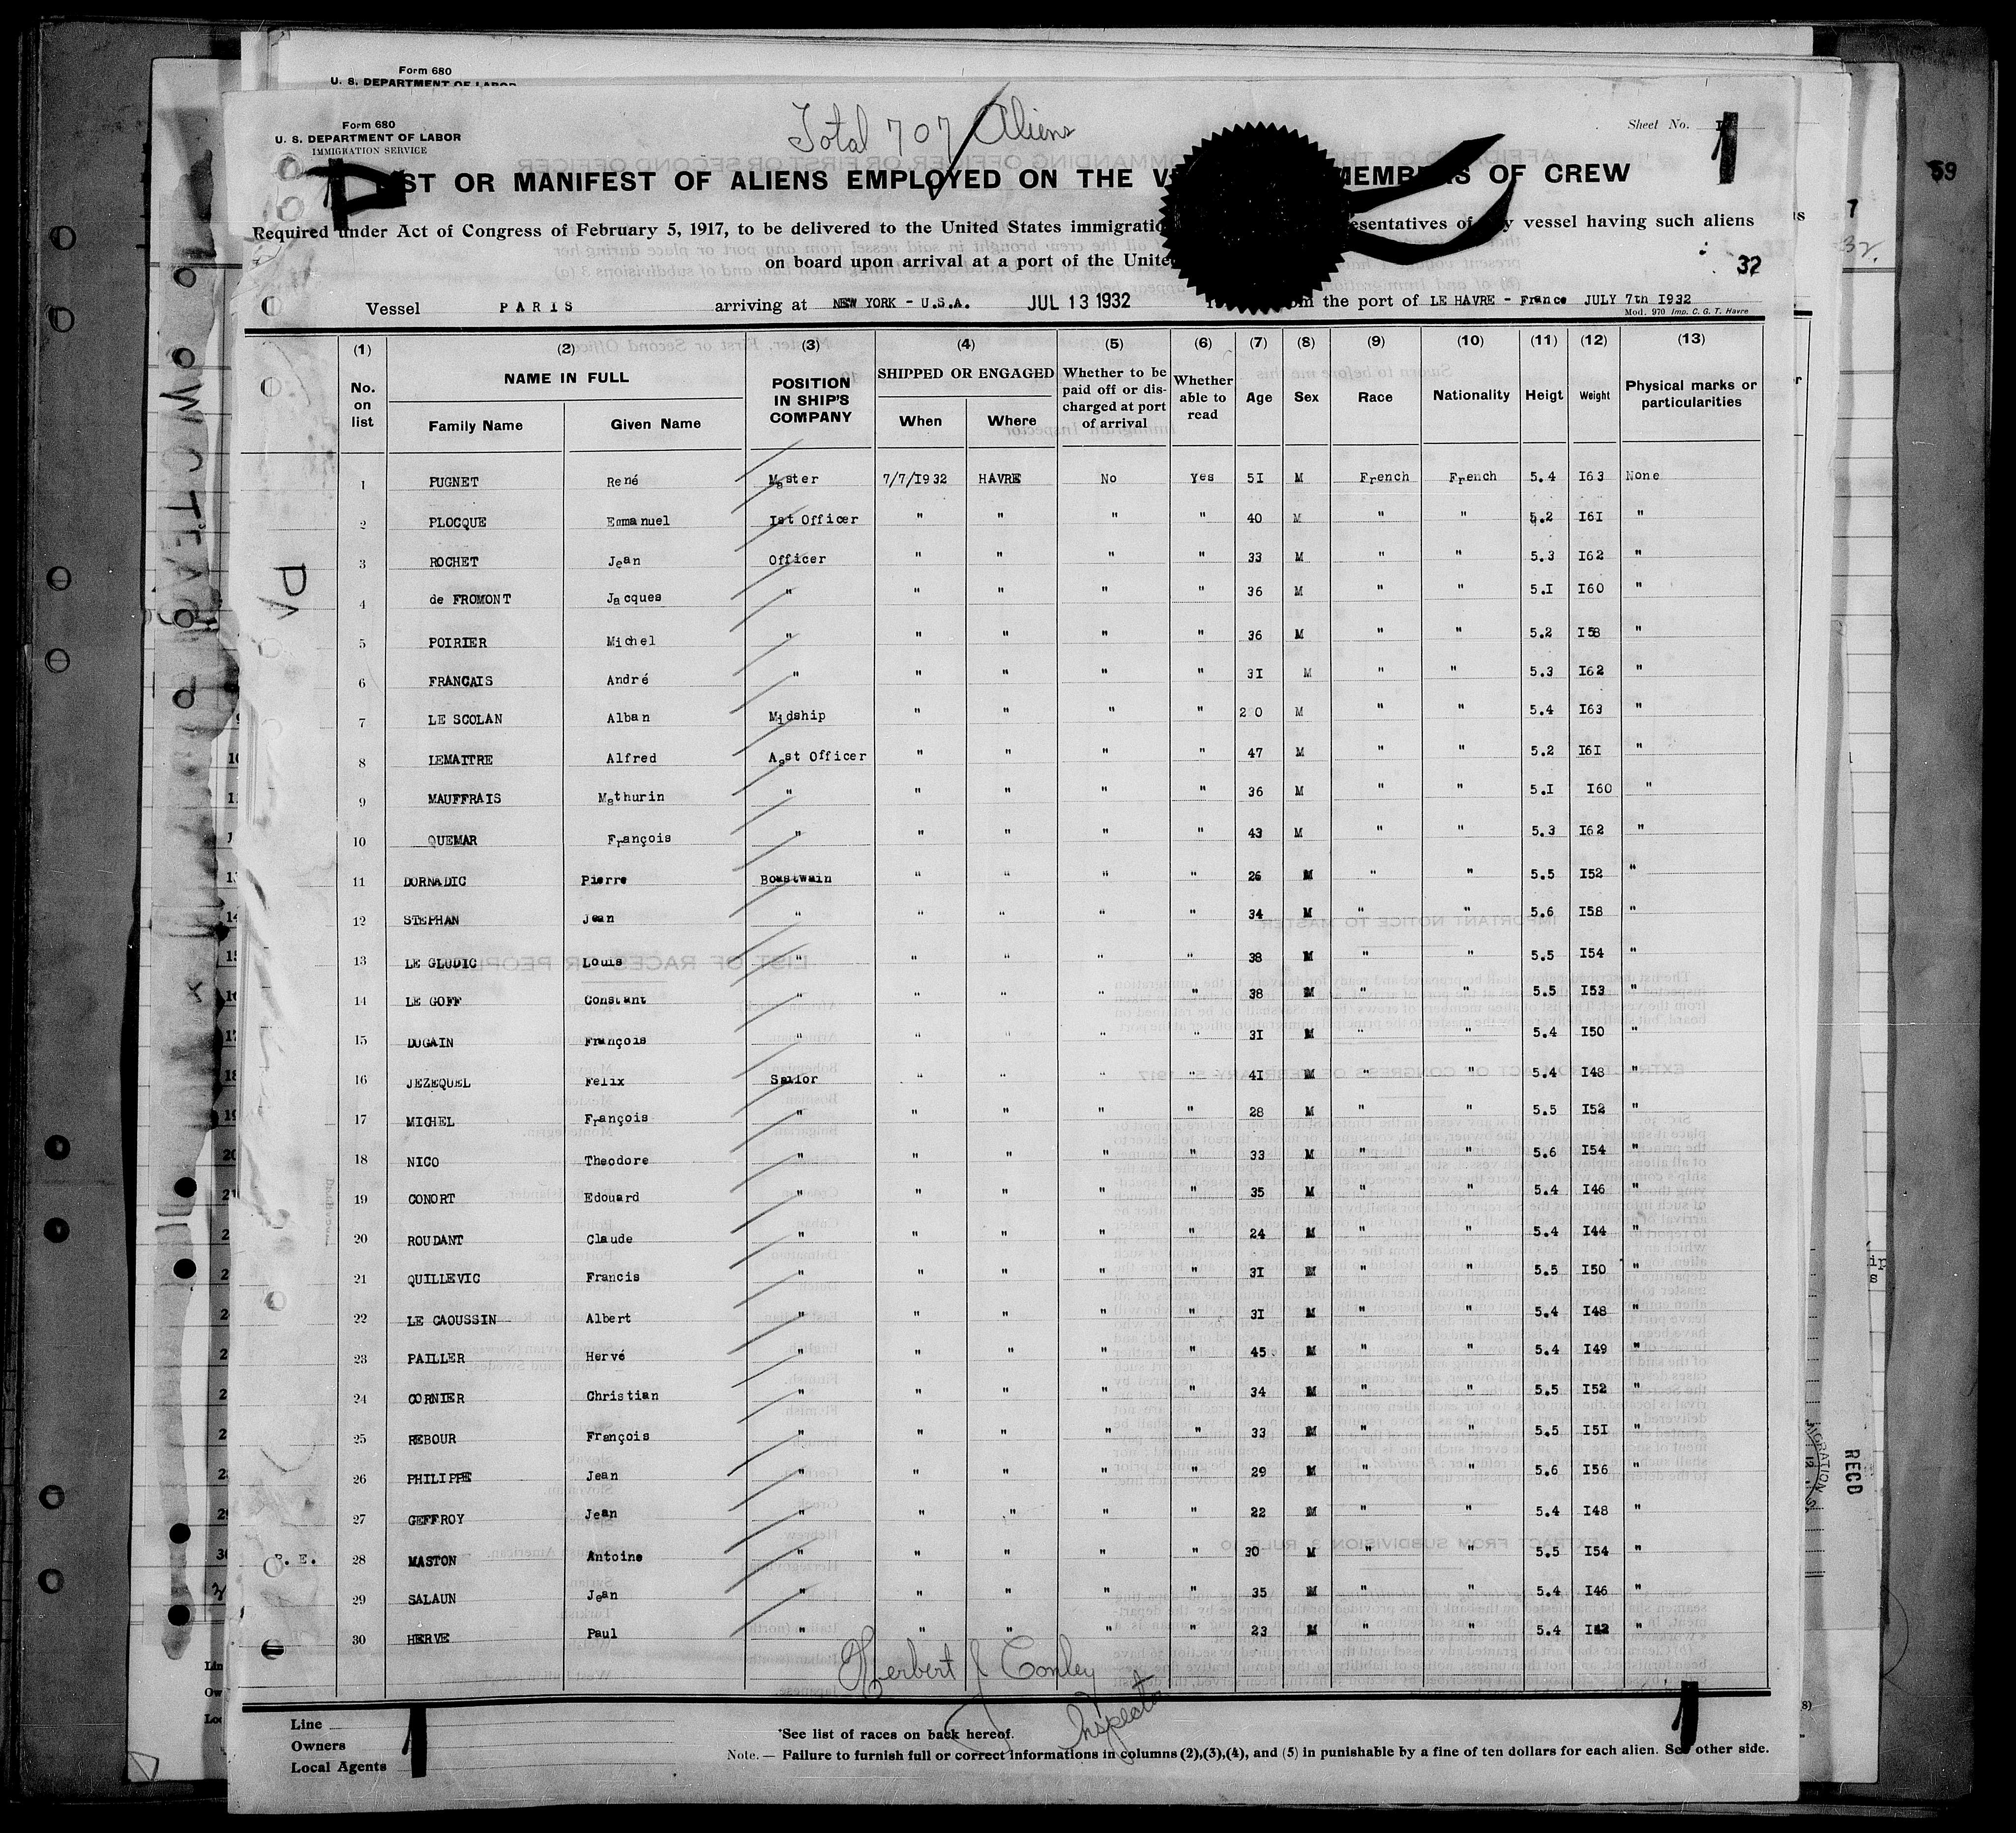 Form 680
U. S. DEPARTMENT OF LABOR
Form 680
U. S. DEPARTMENT OF LABOR
IMMIGRATION SERVICE
Total 707 Aliens
Sheet No. I
ST OR MANIFEST OF ALIENS EMPLOYED ON THE V MEMBERS OF CREW
Required under Act of Congress of February 5, 1917, to be delivered to the United States immigratio esentatives of vessel having such aliens
on board upon arrival at a port of the Unite
32
Vessel PARIS arriving at NEW YORK - U.S.A. JUL 13 1932 the port of LE HAVRE - France JULY 7th I932
Mod. 970 Imp. C. G. T. Havre
(1) (2) (3) (4) (5) (6) (7) (8) (9) (10) (11) (12) (13)
No. on list NAME IN FULL Family Name Given Name POSITION IN SHIP'S COMPANY SHIPPED OR ENGAGED When Where Whether to be paid off or discharged at port of arrival Whether able to read Age Sex Race Nationality Heigt Weight Physical marks or particularities
1 PUGNET René Master 7/7/I932 HAVRE No Yes 5I M French French 5.4 I63 None
2 PLOCQUE Emmanuel Ist Officer " " " " 40 M " " 5.2 I6I "
3 ROCHET Jean Officer " " " " 33 M " " 5.3 I62 "
4 de FROMONT Jacques " " " " " 36 M " " 5.I I60 "
5 POIRIER Michel " " " " " 36 M " " 5.2 I58 "
6 FRANCAIS André " " " " " 3I M " " 5.3 I62 "
7 LE SCOLAN Alban Midship " " " " 20 M " " 5.4 I63 "
8 LEMAITRE Alfred Asst Officer " " " " 47 M " " 5.2 I6I "
9 MAUFFRAIS Mathurin " " " " " 36 M " " 5.I I60 "
10 QUEMAR François " " " " " 43 M " " 5.3 I62 "
11 DORNADIC Pierre Boastwain " " " " 26 M " " 5.5 I52 "
12 STEPHAN Jean " " " " " 34 M " " 5.6 I58 "
13 LE GLUDIC Louis " " " " " 38 M " " 5.5 I54 "
14 LE GOFF Constant " " " " " 38 M " " 5.5 I53 "
15 DUGAIN François " " " " " 3I M " " 5.4 I50 "
16 JEZEQUEL Felix Sailor " " " " 4I M " " 5.4 I48 "
17 MICHEL François " " " " " 28 M " " 5.5 I52 "
18 NICO Theodore " " " " " 33 M " " 5.6 I54 "
19 CONORT Edouard " " " " " 35 M " " 5.4 I46 "
20 ROUDANT Claude " " " " " 24 M " " 5.4 I44 "
21 QUILLEVIC Francis " " " " " 3I M " " 5.5 I50 "
22 LE CAOUSSIN Albert " " " " " 3I M " " 5.4 I48 "
23 PAILLER Hervé " " " " " 45 M " " 5.4 I49 "
24 CORNIER Christian " " " " " 34 M " " 5.5 I52 "
25 REBOUR François " " " " " 33 M " " 5.5 I5I "
26 PHILIPPE Jean " " " " " 29 M " " 5.6 I56 "
27 GEFFROY Jean " " " " " 22 M " " 5.4 I48 "
28 MASTON Antoine " " " " " 30 M " " 5.5 I54 "
29 SALAUN Jean " " " " " 35 M " " 5.4 I46 "
30 HERVE Paul " " " " " 23 M " " 5.4 I42 "
Herbert J Conley
Inspector
Line
Owners
Local Agents
*See list of races on back hereof.
Note. — Failure to furnish full or correct informations in columns (2),(3),(4), and (5) in punishable by a fine of ten dollars for each alien. See other side.
59
RECD